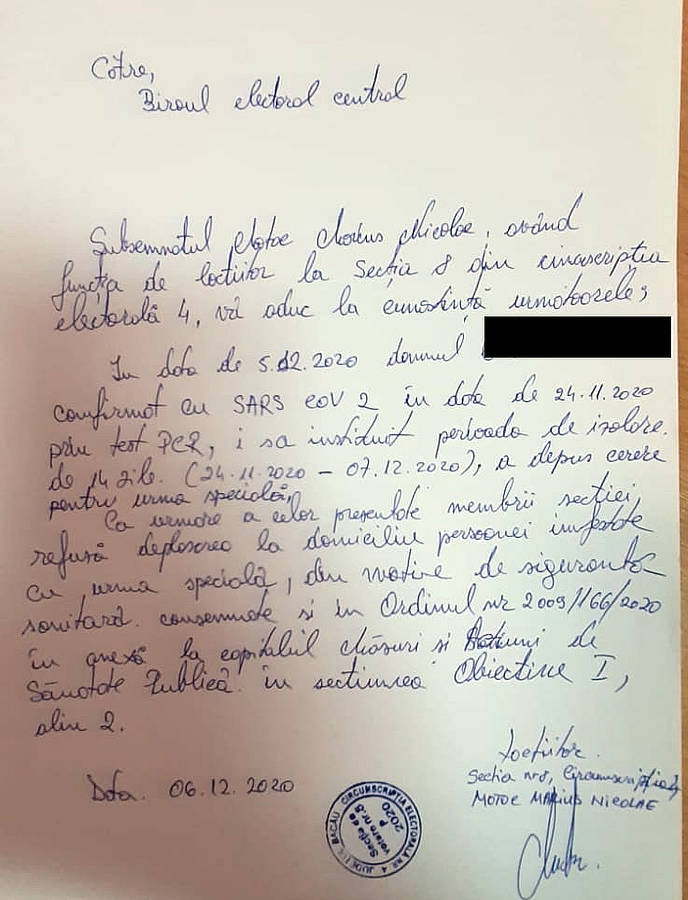 Către,
Biroul electoral central
Subsemnatul Motoc Marius Nicolae, având
funcția de loctiitor la Secția 8 din circumscripția
electorală 4, vă aduc la cunostintă urmatoarele;
In data de 5.12.2020 domnul
comfirmat cu SARS COV 2 în data de 24.11.2020
prin test PCR, i sa instituit perioada de izolare.
de 14 zile. (24.11.2020 – 07.12.2020), a depus cerere
pentru urma specială,
Ca urmare a celor prezentate membrii secției,
refuză deplasarea la domiciliu persoanei infestate
cu urma specială, din motive de siguranta
sanitară. consemnate si in Ordinul nr 2009/166/2020
in anexă la capitolul Măsuri si Actiuni de
Sănatate Publică in sectiunea Obiective I,
alin 2.
Data. 06.12.2020
Loctiitor.
Sectia nr8, Circumscriptia 4
MOTOC MARIUS NICOLAE
JUDEȚUL BACĂU CIRCUMSCRIPȚIA ELECTORALĂ NR. 4
Secția de
votare nr. 8
P
2020